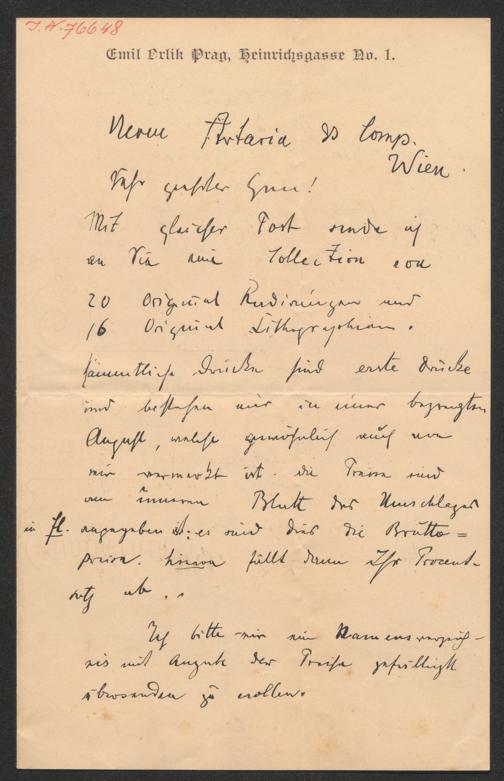 I.N. 76648
Emil Orlik Prag, Heinrichsgasse No. 1.
Herrn Artaria & Comp.
Wien.
Sehr geehrter Herr!
Mit gleicher Post sende ich
an Sie eine Collection von
20 Original Radirungen und
16 Original Lithographien.
sämmtliche Drucke sind erste Drucke
und bestehen nur in einer begrenzten
Anzahl, welche gewöhnlich auch von
mir vermerkt ist. die Preise sind
am inneren Blatt des Umschlages
in fl. angegeben es sind dies die Brutto=
preise. hievon fällt dann Ihr Procent-
satz ab..
Ich bitte mir ein Namensverzeich-
nis mit Angabe der Preise gefälligst
übersenden zu wollen.